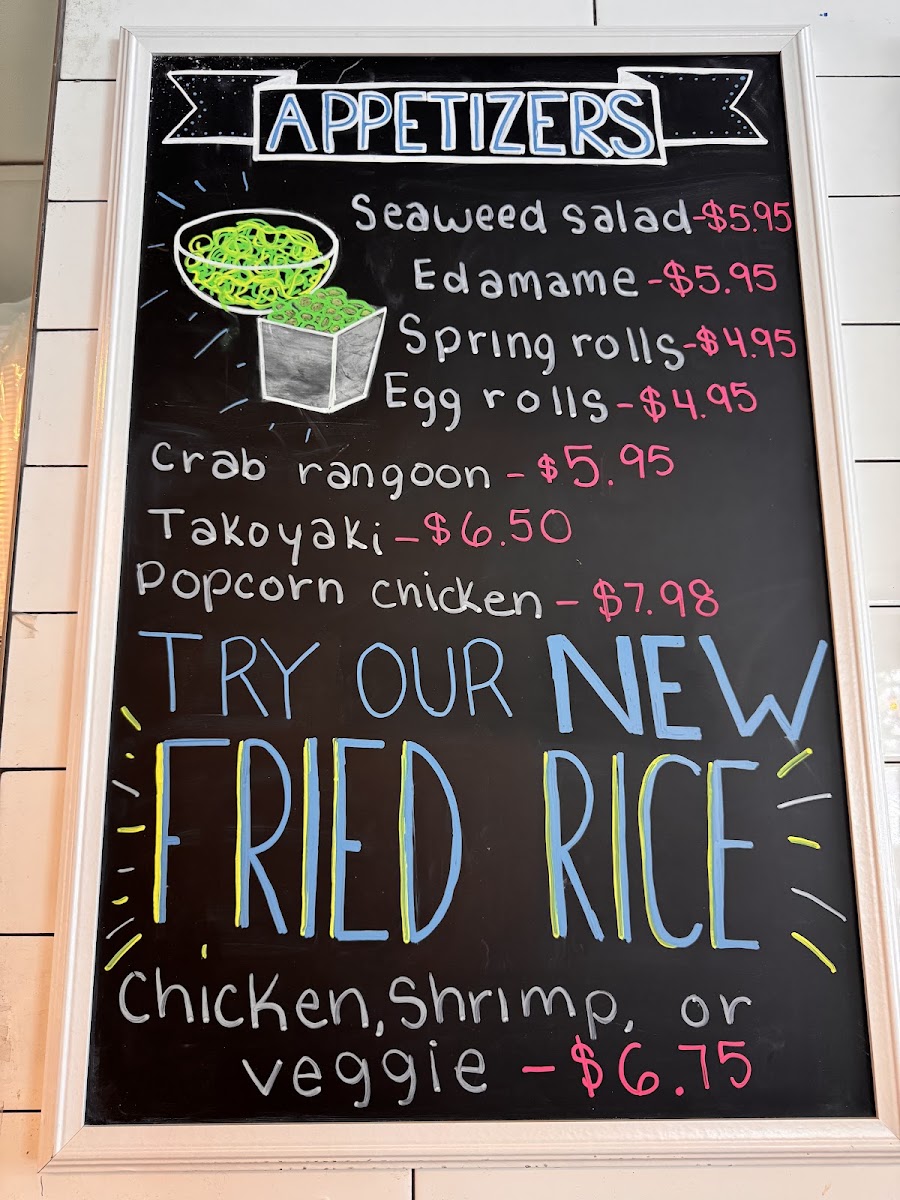 APPETIZERS
Seaweed salad-$5.95
Edamame-$5.95
Spring rolls-$4.95
Egg rolls-$4.95
Crab rangoon-$5.95
Takoyaki-$6.50
Popcorn chicken-$7.98
TRY OUR NEW
FRIED RICE
Chicken, Shrimp, or
veggie-$6.75